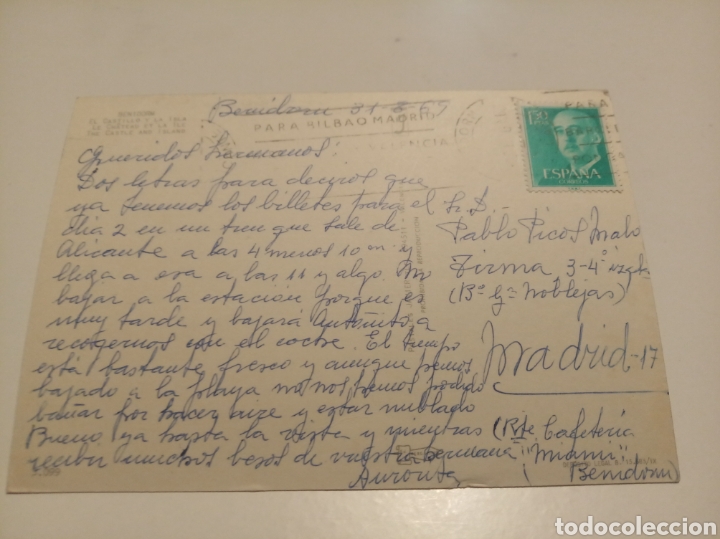 BENIDORM
EL CASTILLO Y LA ISLA
THE CASTLE AND ISLAND
Benidorm 31-8-65
PARA BILBAO MADRID
VALENCIA
PARA
1,50
PTAS
ESPAÑA
CORREOS
Queridos hermanos:
Dos letras para deciros que
ya tenemos los billetes para el
día 2 en un tren que sale de
Alicante a las 4 menos 10 m. y
llega a esa a las 11 y algo. No
bajar a la estación porque es
muy tarde y bajará Antoñito a
recogernos con el coche. El tiempo
está bastante fresco y aunque hemos
bajado a la playa no nos hemos podido
bañar por hacer aire y estar nublado
Bueno ya hasta la vista y mientras
recibir muchos besos de vuestra hermana
Sr. D.
Pablo Picos Malo
Tirma 3-4º izqda
(Bº Gª Noblejas)
Madrid-17
(Rte Cafetería
"Miami"
(Benidorm)
todocoleccion